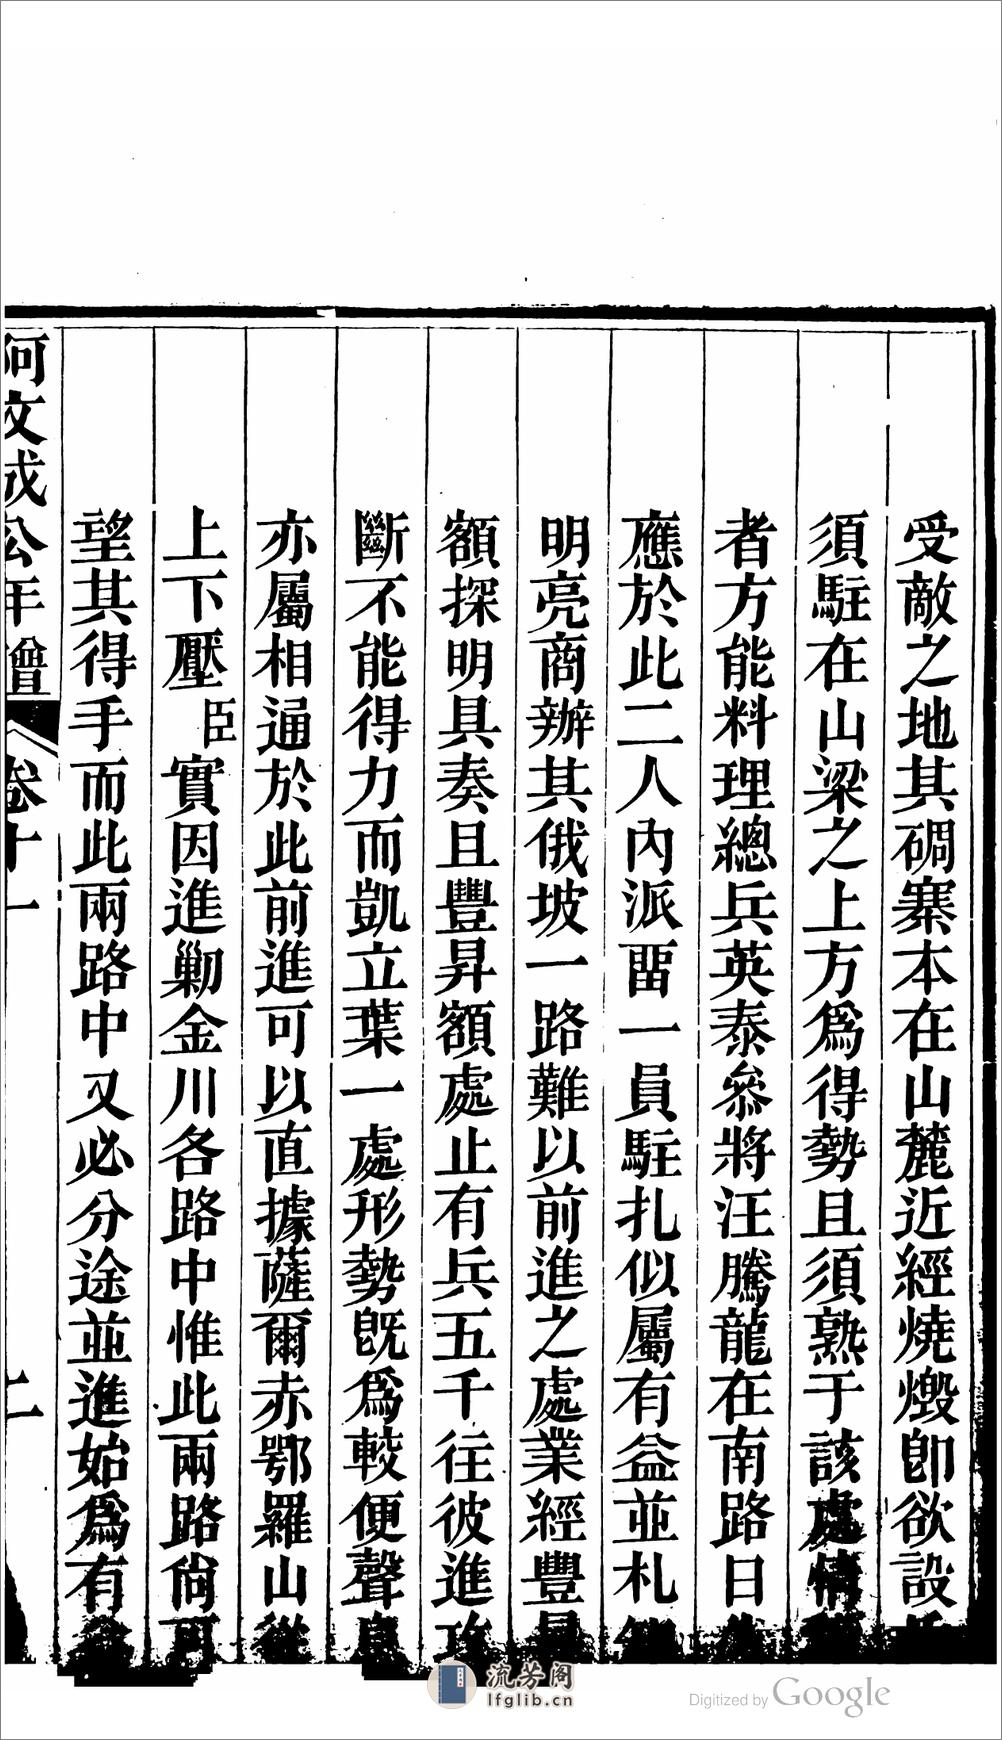 受敵之地其碉寨本在山麓近經燒燬卽欲設
須駐在山梁之上方爲得勢且須熟于該處情
者方能料理總兵英泰叅將汪騰龍在南路日
應於此二人內派畱一員駐扎似屬有益並札
明亮商辦其俄坡一路難以前進之處業經豐昇
額探明具奏且豐昇額處止有兵五千往彼進攻
斷不能得力而凱立葉一處形勢旣爲較便聲息
亦屬相通於此前進可以直據薩爾赤鄂羅山從
上下壓臣實因進勦金川各路中惟此兩路尙可
望其得手而此兩路中又必分途並進始爲有
阿文成公年譜 卷十一 二
流芳阁
lfglib.cn
Digitized by Google